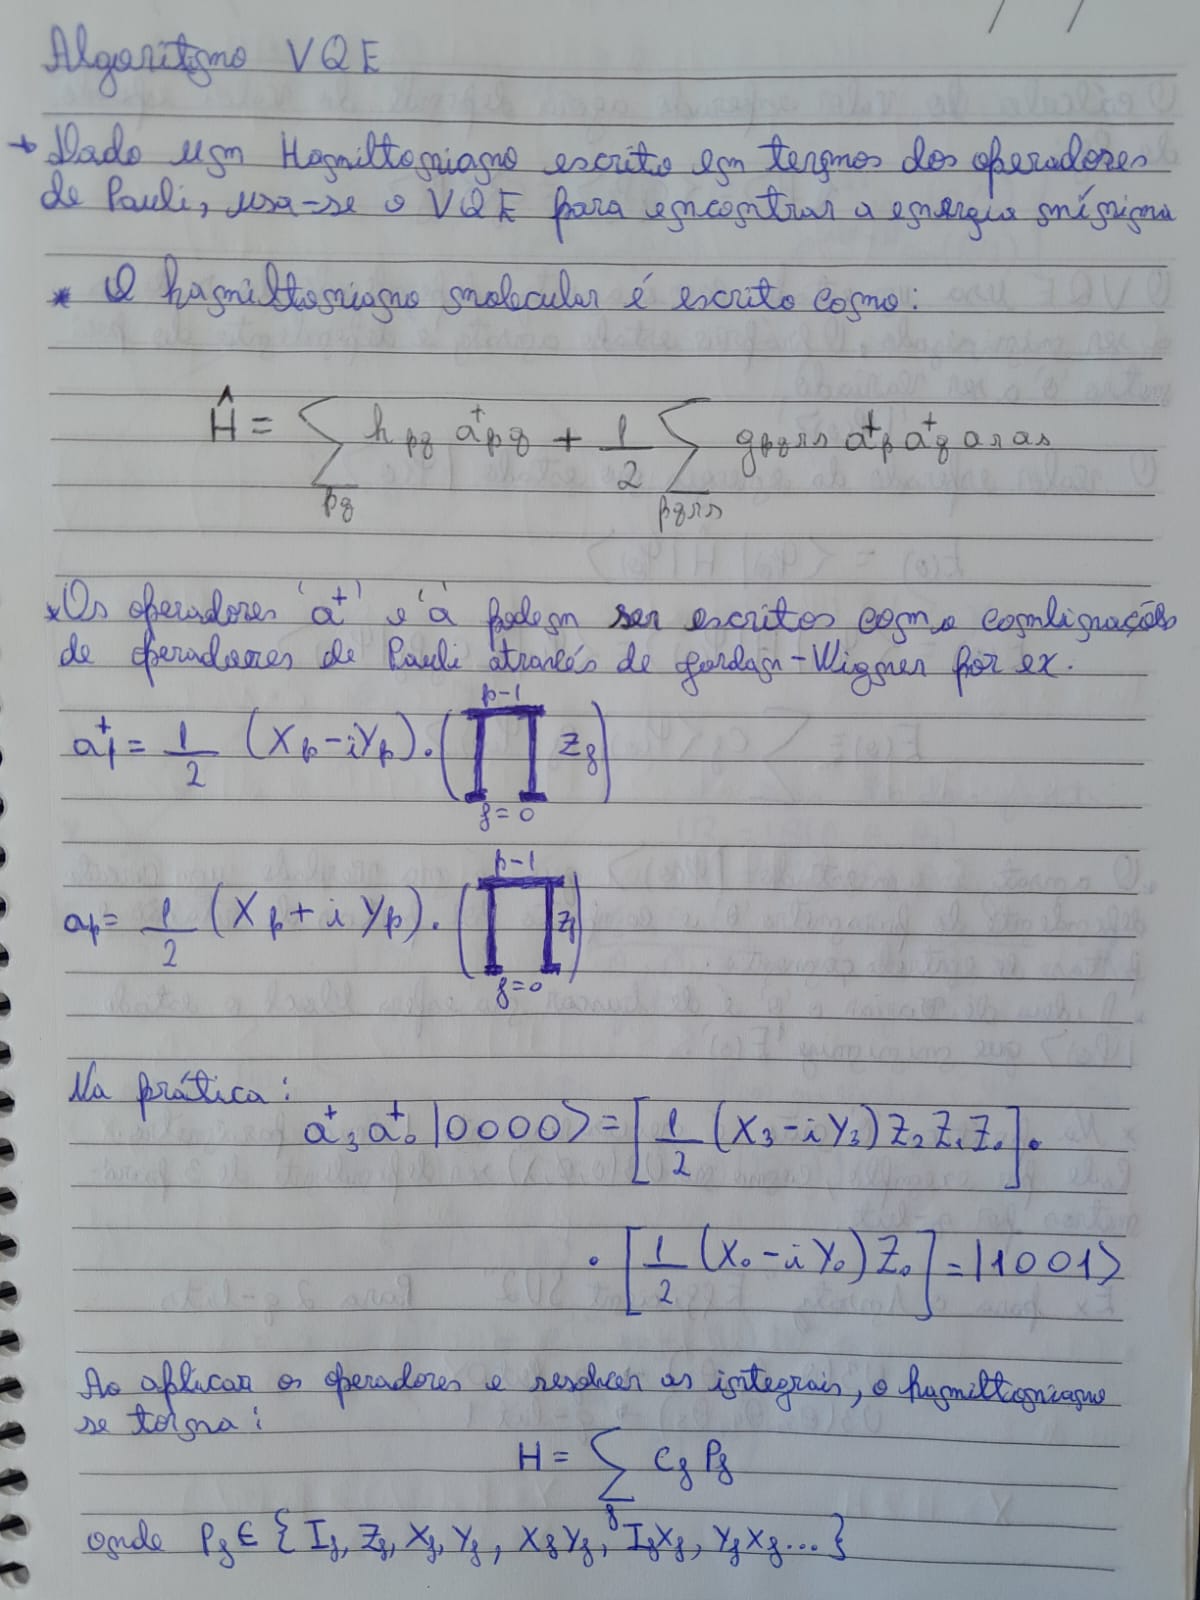 Algoritmo VQE
→ Dado um Hamiltoniano escrito em termos dos operadores
de Pauli, usa-se o VQE para encontrar a energia mínima
* O hamiltoniano molecular é escrito como:
Ĥ = ∑_{pq} h_{pq} a⁺_{pq} + 1/2 ∑_{pqrs} g_{pqrs} a⁺_p a⁺_q a_r a_s
* Os operadores 'a⁺' e 'a' podem ser escritos como combinações
de operadores de Pauli através de Jordan-Wigner por ex.
a⁺_p = 1/2 (X_p - iY_p) . (∏_{j=0}^{p-1} Z_j)
a_p = 1/2 (X_p + iY_p) . (∏_{j=0}^{p-1} Z_j)
Na prática:
a⁺_3 a⁺_0 |0000⟩ = [1/2 (X_3 - iY_3) Z_2 Z_1 Z_0] .
. [1/2 (X_0 - iY_0) Z_0] = |1001⟩
Ao aplicar os operadores e resolver as integrais, o hamiltoniano
se torna:
H = ∑_j C_j P_j
onde P_j ∈ { I_j, Z_j, X_j, Y_j, X_jY_j, I_jX_j, Y_jX_j... }